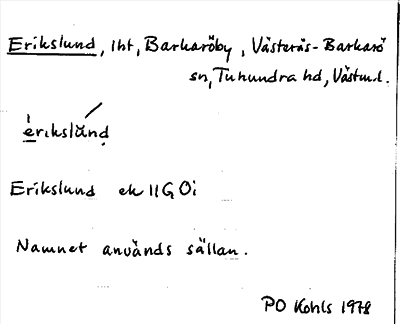 Erikslund, lht, Barkaröby, Västerås-Barkarö
sn, Tuhundra hd, Västml.
èrikslánd
Erikslund ek 11G 0i
Namnet används sällan.
PO Kohls 1978